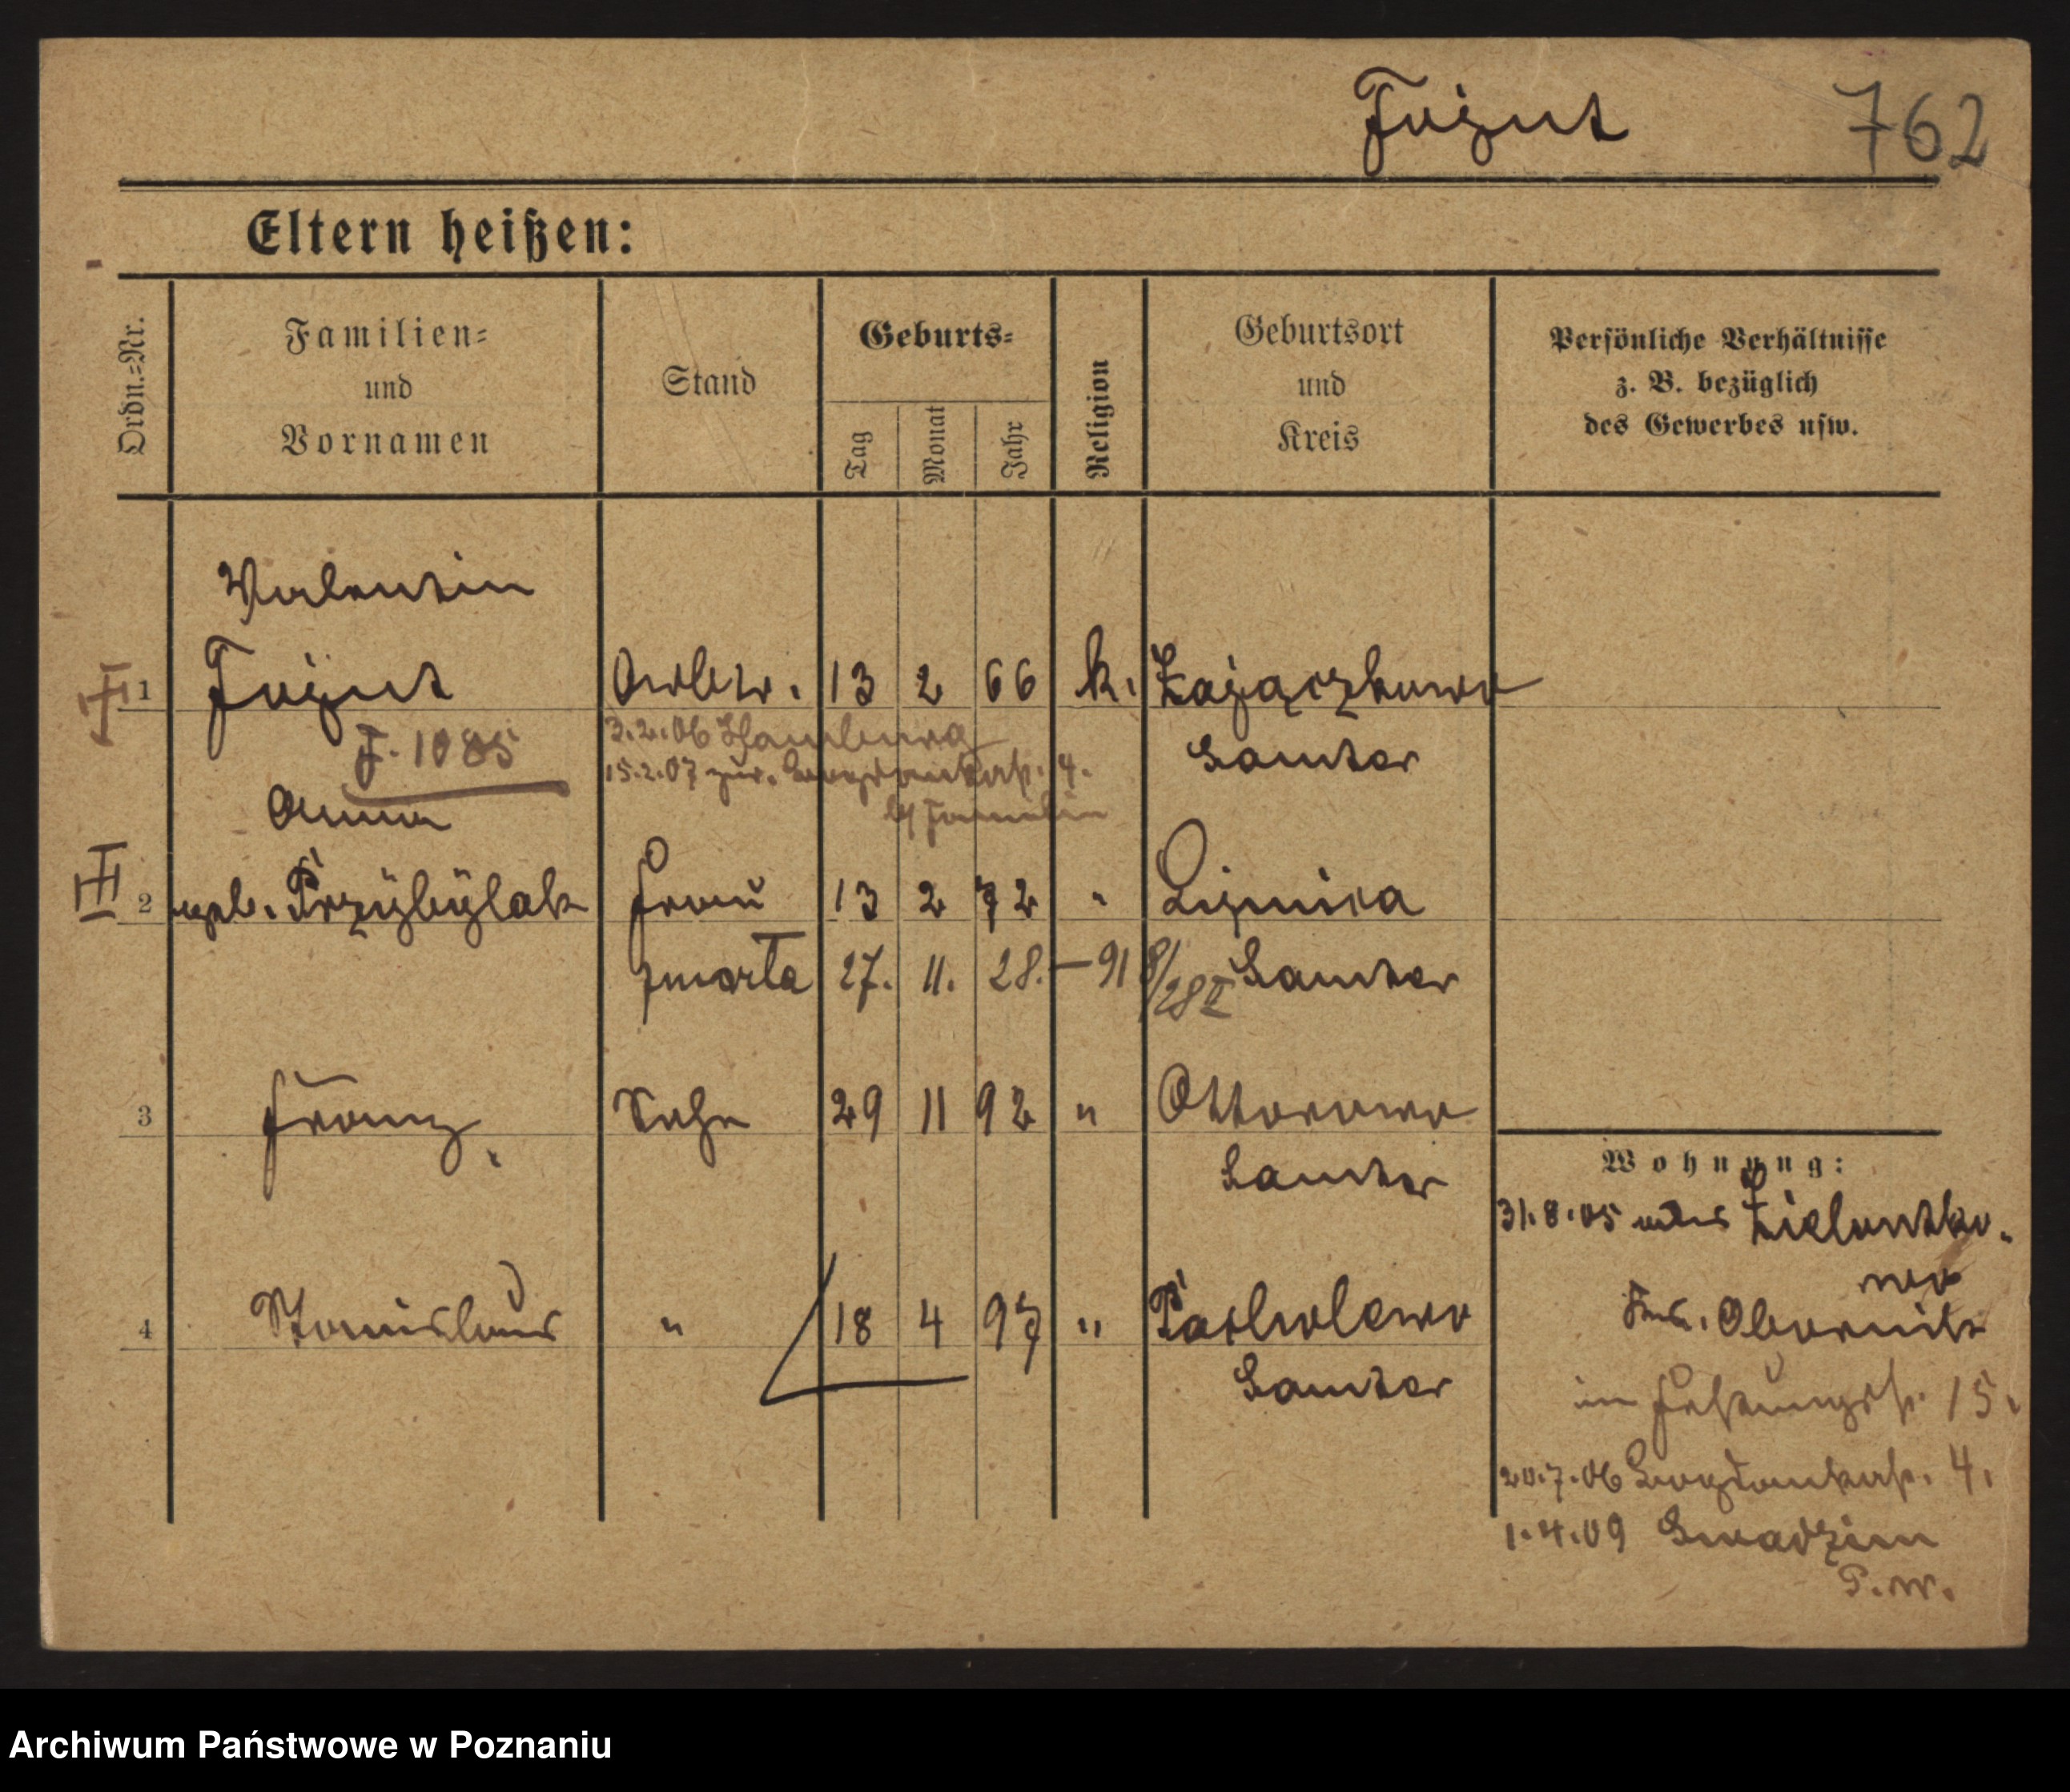 Fojut 762
Eltern heißen:
Ordn.-Nr.
Familien-
und
Vornamen
Stand
Geburts-
Tag
Monat
Jahr
Religion
Geburtsort
und
Kreis
Persönliche Verhältnisse
z. B. bezüglich
des Gewerbes usw.
Valentin
1 Fojut Arbtr. 13 2 66 k. Zajączkowo
F. 1085
3.2.06 Hamburg
Samter
15.2.07 zur. 4.
Anna
Familie
III 2 geb. Przybylak Frau 13 2 72 " Lipnica
zmarła 27. 11. 28. – 918/28 II Samter
3 Franz Sohn 29 11 92 " Ottorowo
Samter
Wohnung:
31.8.05 unten Zielontko-
wo
4 Stanislaus " 18 4 97 "
Samter
Krs. Obornik
in Festungsstr. 15.
20.7.06 Bogdankastr. 4.
1.4.09 Swadzim
P. W.
Archiwum Państwowe w Poznaniu